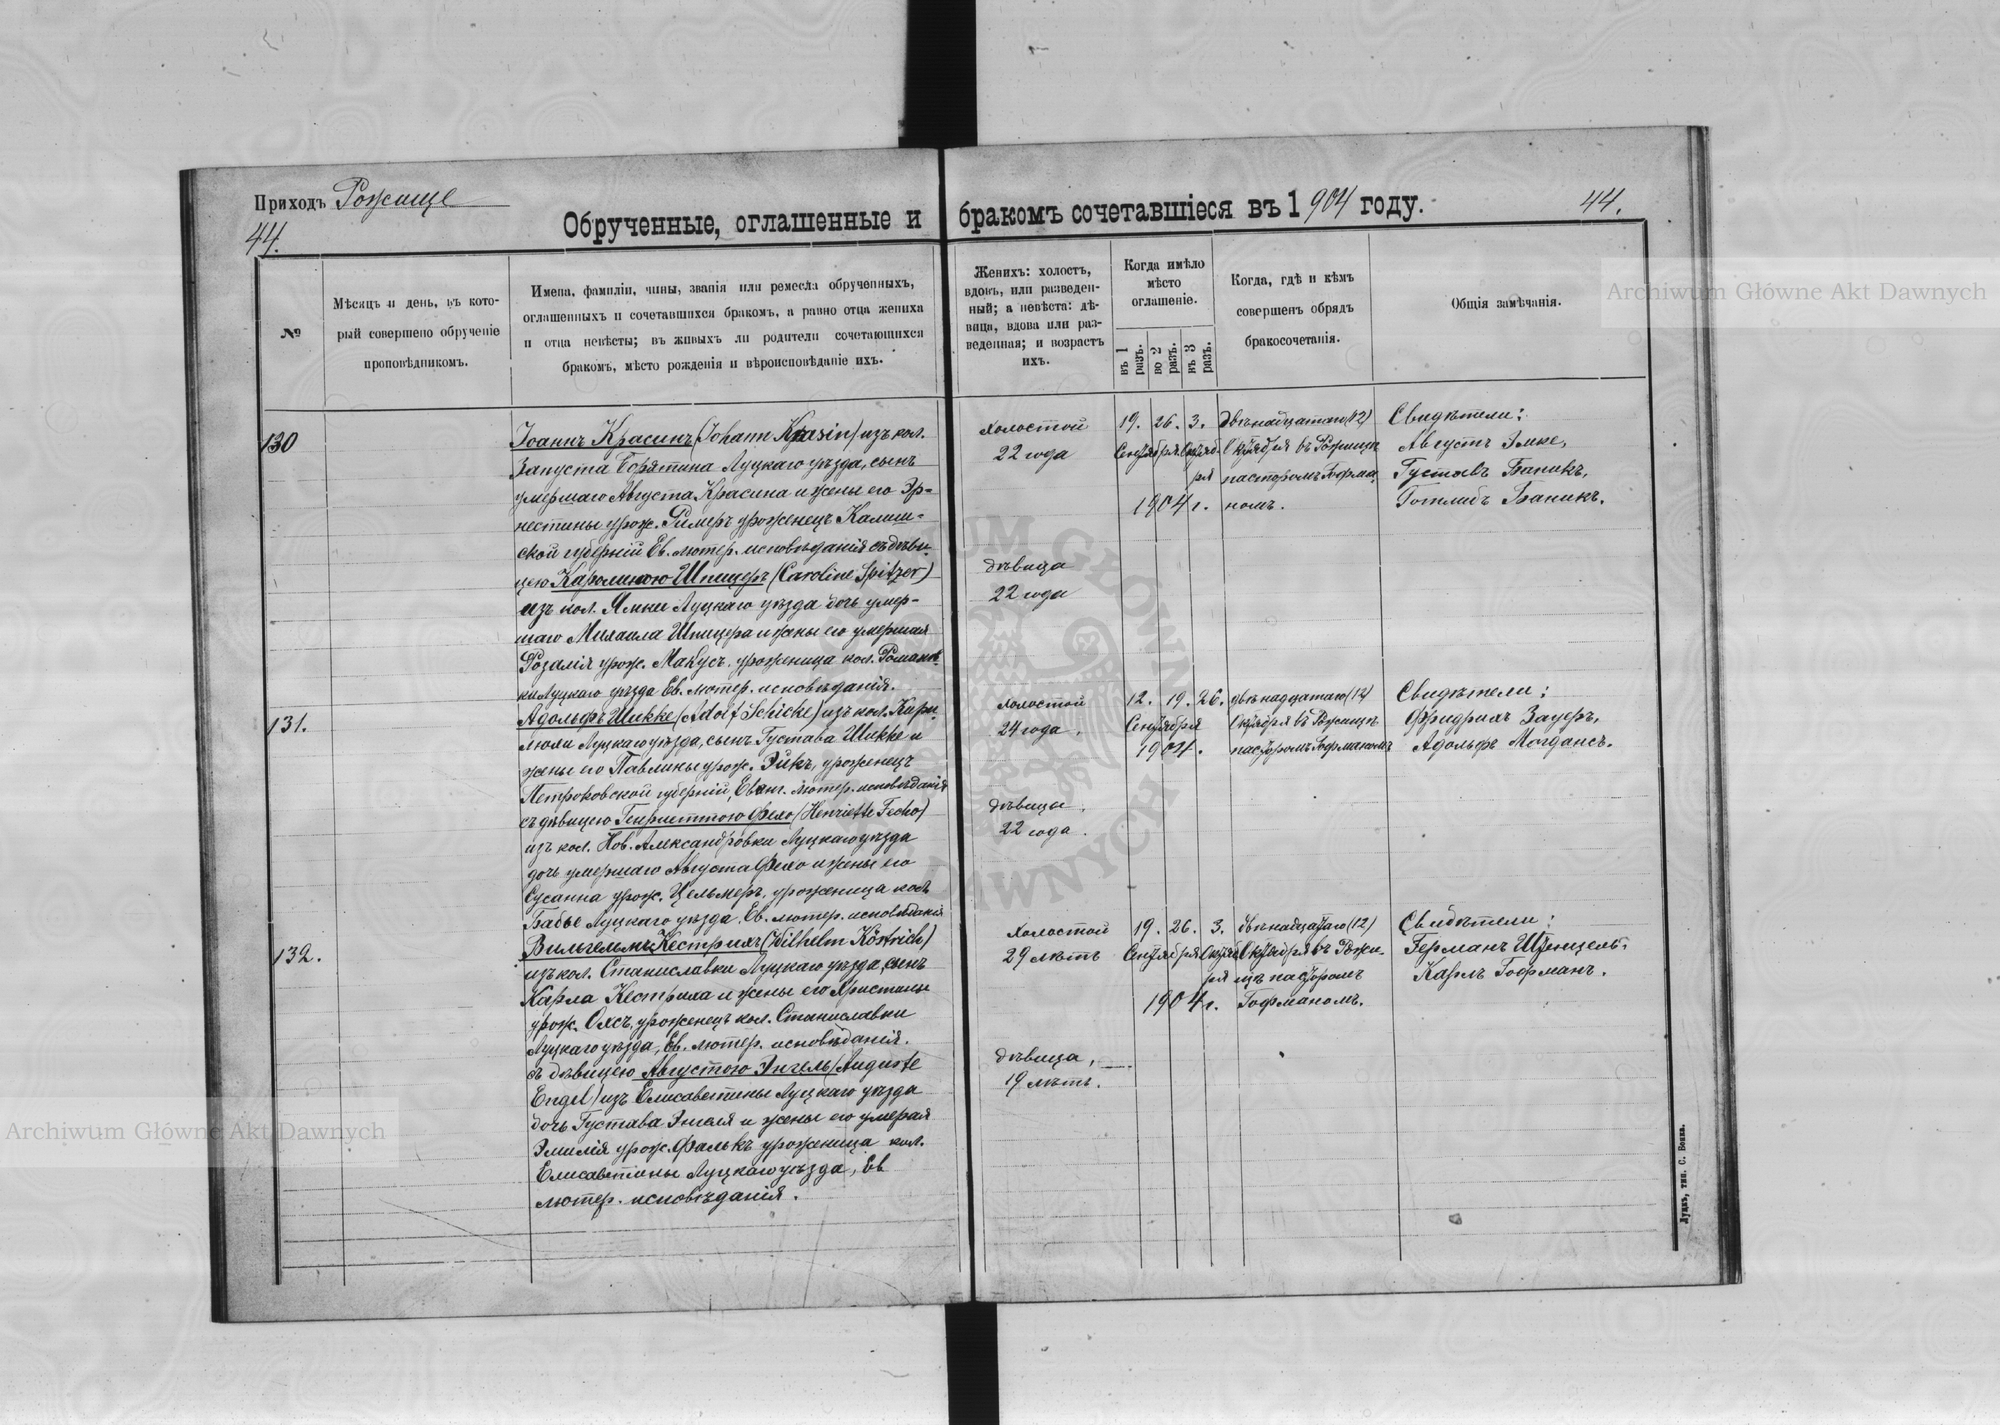 Приходъ Рожище
44.
Обрученные, оглашенные и бракомъ сочетавшіеся въ 1904 году.
44.
№
Мѣсяцъ и день, въ кото-
рый совершено обрученіе
проповѣдникомъ.
Имена, фамиліи, чины, званія или ремесла обрученныхъ,
оглашенныхъ и сочетавшихся бракомъ, а равно отца жениха
и отца невѣсты; въ живыхъ ли родители сочетающихся
бракомъ, мѣсто рожденія и вѣроисповѣданіе ихъ.
Женихъ: холостъ,
вдовъ, или разведен-
ный; а невѣста: дѣ-
вица, вдова или раз-
веденная; и возрастъ
ихъ.
Когда имѣло
мѣсто
оглашеніе.
въ 1
разъ.
во 2
разъ.
въ 3
разъ.
Когда, гдѣ и кѣмъ
совершенъ обрядъ
бракосочетанія.
Общія замѣчанія.
130
Іоаннъ Красинъ (Johann Krasin) изъ кол.
Запуста Борятина Луцкаго уѣзда, сынъ
умершаго Августа Красина и жены его Эр-
нестины урож. Ример уроженецъ Калиш-
ской губерніи Ев. лютер. исповѣданія съ дѣви-
цею Каролиною Шпицеръ (Caroline Spitzer)
изъ кол. Ямки Луцкаго уѣзда дочь умер-
шаго Михаила Шпицера и жены его умершая
Розалія урож. Макусъ, уроженица кол. Романов-
ки Луцкаго уѣзда Ев. лютер. исповѣданія.
холостой
22 года
дѣвица
22 года
19. 26. 3.
Сентября Октяб-
ря
1904 г.
двѣнадцатаго (12)
Октября въ Рожищѣ
пасторомъ Гофма-
номъ.
Свидѣтели:
Августъ Эмке,
Густавъ Баникъ,
Готлибъ Баникъ.
131.
Адольфъ Шикке (Adolf Schicke) изъ кол.
Луцкаго уѣзда, сынъ Густава Шикке и
жены его Павлины урож. Эйкъ, уроженецъ
Петроковской губерніи, Еванг. лютер. исповѣданія
съ дѣвицею Генріеттою Фехо (Henriette Fecho)
изъ кол. Нов. Александровки Луцкаго уѣзда
дочь умершаго Августа Фехо и жены его
Сусанна урож. Цельмеръ, уроженица кол.
Бабье Луцкаго уѣзда. Ев. лютер. исповѣданія
холостой
24 года.
дѣвицы.
22 года.
12. 19. 26.
Сентября
1904.
двѣнадцатаго (12)
Октября въ Рожищѣ
пасторомъ Гофманомъ
Свидѣтели:
Фридрихъ Зауеръ,
Адольфъ Могдансъ.
132.
Вильгельмъ Кестрихъ (Wilhelm Köstrich)
изъ кол. Станиславки Луцкаго уѣзда, сынъ
Карла Кестриха и жены его Христины
урож. Охсъ, уроженецъ кол. Станиславки
Луцкаго уѣзда, Ев. лютер. исповѣданія.
съ дѣвицею Августою Энгель (Auguste
Engel) изъ Елисаветины Луцкаго уѣзда
дочь Густава Энгеля и жены его умершая
Эмилія урож. Фалькъ уроженица кол.
Елисаветины Луцкаго уѣзда, Ев
лютер. исповѣданія.
холостой
29 лѣтъ
дѣвица,
19 лѣтъ.
19. 26. 3.
Сентября Октяб-
ря
1904 г.
двѣнадцатаго (12)
Октября въ Рожи-
щѣ пасторомъ
Гофманомъ.
Свидѣтели:
Германъ Штенцель.
Карлъ Гофманъ.
Луцкъ, тип. С. Бонка.
Archiwum Główne Akt Dawnych
Archiwum Główne Akt Dawnych